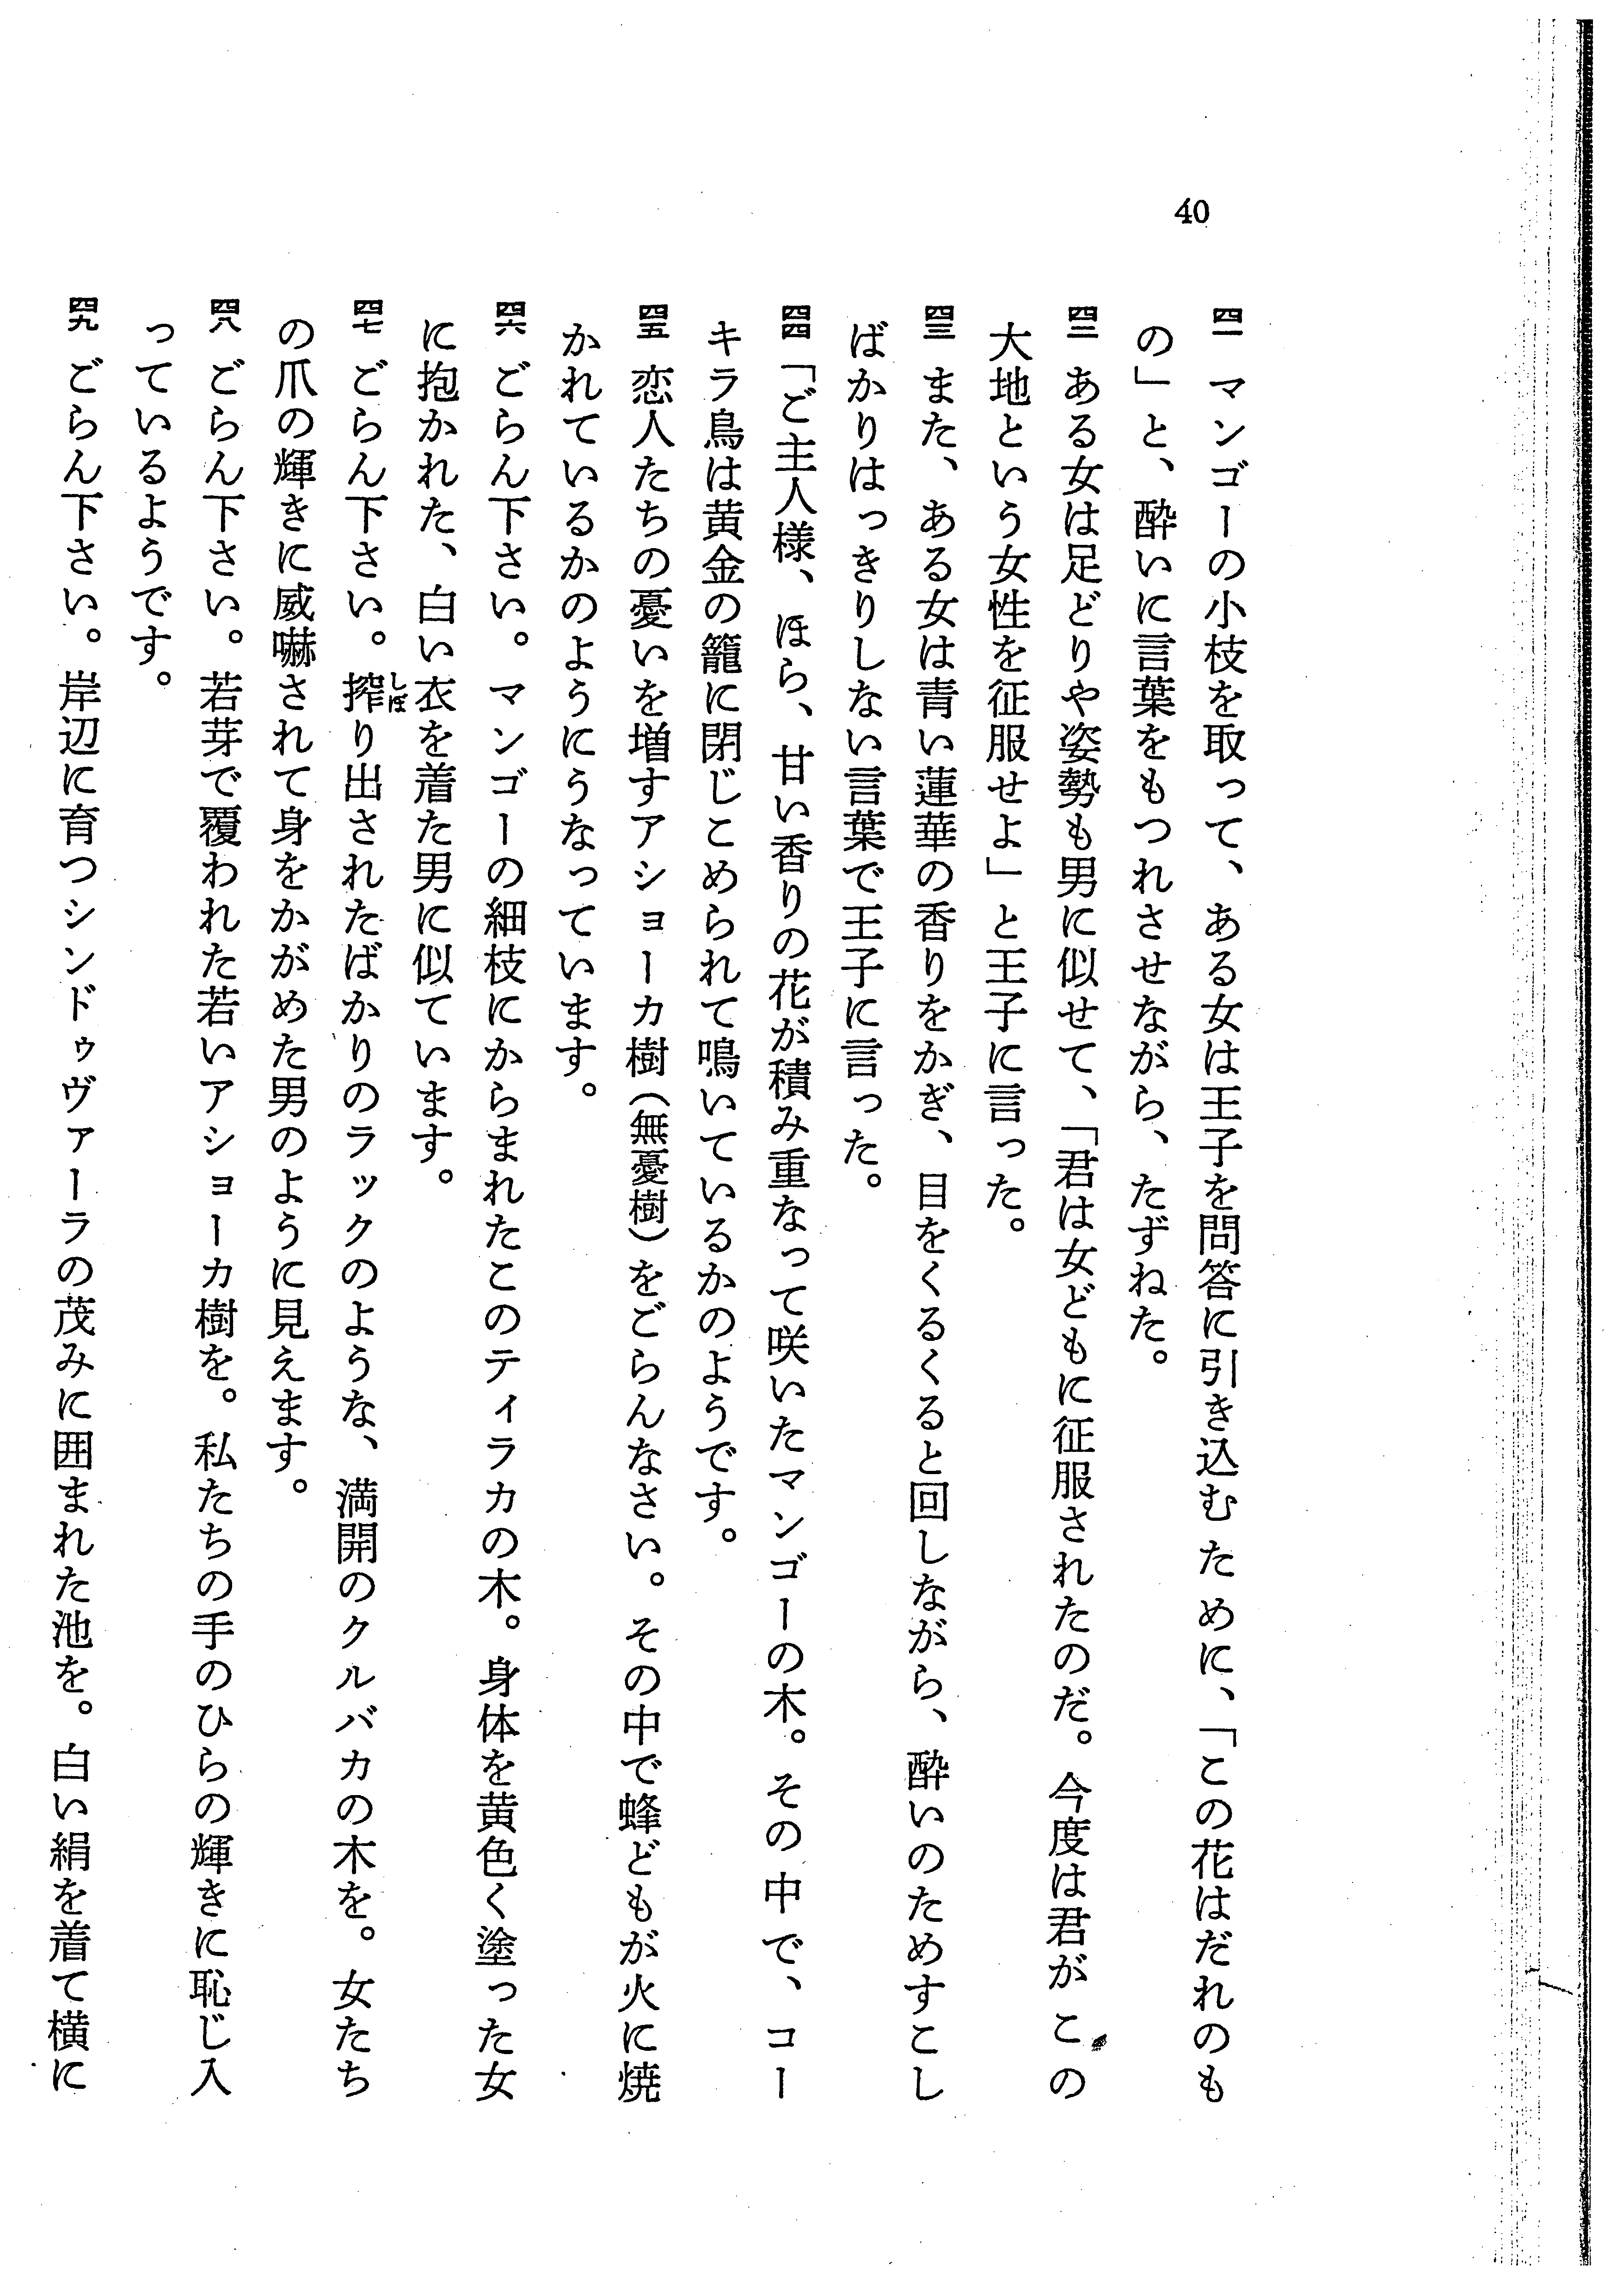 40
四一 マンゴーの小枝を取って、ある女は王子を問答に引き込むために、「この花はだれのも
の」と、酔いに言葉をもつれさせながら、たずねた。
四二 ある女は足どりや姿勢も男に似せて、「君は女どもに征服されたのだ。今度は君がこの
大地という女性を征服せよ」と王子に言った。
四三 また、ある女は青い蓮華の香りをかぎ、目をくるくると回しながら、酔いのためすこし
ばかりはっきりしない言葉で王子に言った。
四四 「ご主人様、ほら、甘い香りの花が積み重なって咲いたマンゴーの木。その中で、コー
キラ鳥は黄金の籠に閉じこめられて鳴いているかのようです。
四五 恋人たちの憂いを増すアショーカ樹（無憂樹）をごらんなさい。その中で蜂どもが火に焼
かれているかのようにうなっています。
四六 ごらん下さい。マンゴーの細枝にからまれたこのティラカの木。身体を黄色く塗った女
に抱かれた、白い衣を着た男に似ています。
四七 ごらん下さい。搾り出されたばかりのラックのような、満開のクルバカの木を。女たち
しぼ
の爪の輝きに威嚇されて身をかがめた男のように見えます。
四八 ごらん下さい。若芽で覆われた若いアショーカ樹を。私たちの手のひらの輝きに恥じ入
っているようです。
四九 ごらん下さい。岸辺に育つシンドゥヴァーラの茂みに囲まれた池を。白い絹を着て横に